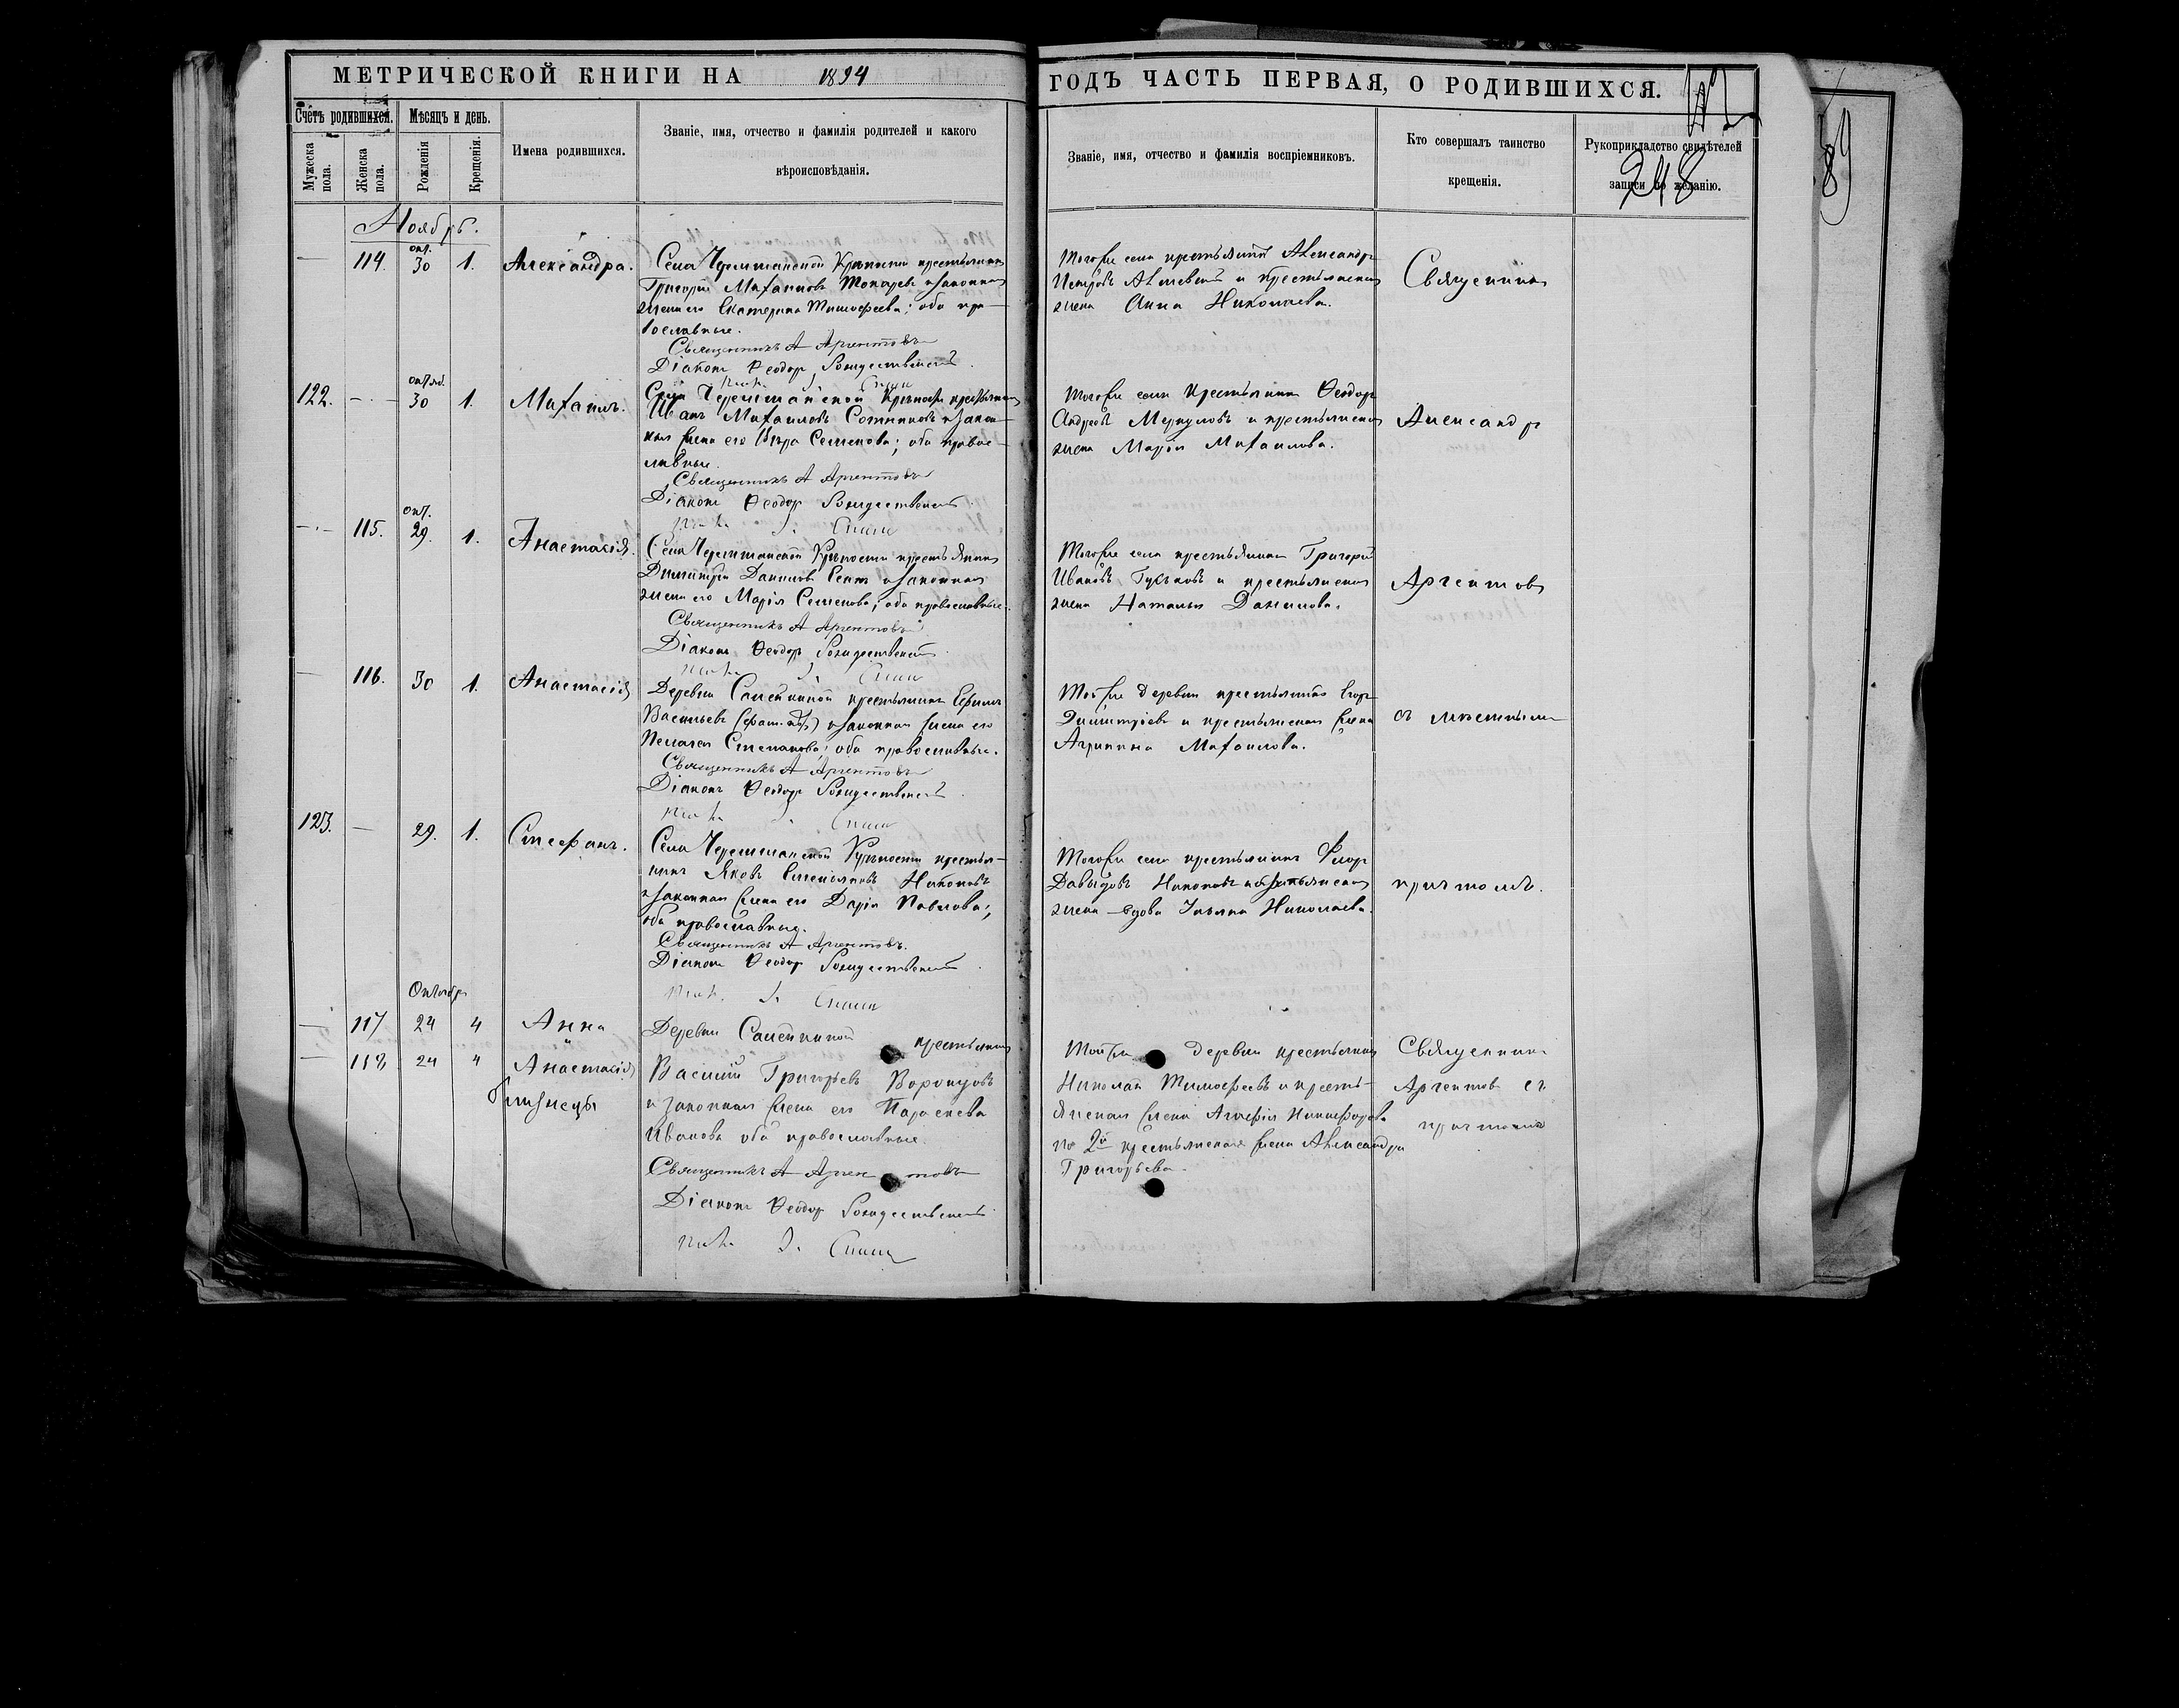 МЕТРИЧЕСКОЙ КНИГИ НА 1894
ГОДЪ ЧАСТЬ ПЕРВАЯ, О РОДИВШИХСЯ.
248
Счетъ родившихся.
Мужеска пола.
Женска пола.
Мѣсяцъ и день.
Рожденія
Крещенія.
Имена родившихся.
Званіе, имя, отчество и фамилія родителей и какого
вѣроисповѣданія.
Званіе, имя, отчество и фамилія воспріемниковъ.
Кто совершалъ таинство
крещенія.
Рукоприкладство свидѣтелей
записи по желанію.
Ноябрь.
— 114. окт. 30 1. Александра.
Села Черемшанской Крѣпости крестьянинъ
Григорій Михаиловъ Токаревъ и законная
жена его Екатерина Тимофеева; оба пра-
вославные.
Священникъ А Аргентовъ
Діаконъ Ѳеодоръ Рождественскій
Тогоже села крестьянинъ Александръ
Петровъ и крестьянская
жена Анна Николаева.
Священникъ
122. — октяб. 30 1. Михаилъ.
Села Черемшанской Крѣпости крестьянинъ
Иванъ Михаиловъ Сотниковъ и закон-
ная жена его Вѣра Семенова; оба правос-
лавные.
Священникъ А Аргентовъ
Діаконъ Ѳеодоръ Рождественскій
Тогоже села крестьянинъ Ѳеодоръ
Андреевъ Меркуловъ и крестьянская
жена Марія Михаилова.
Александръ
— 115. окт. 29. 1. Анастасія.
Села Черемшанской Крѣпости крестьянинъ
Димитрій Даниловъ и законная
жена его Марія Семенова; оба православные.
Священникъ А Аргентовъ
Діаконъ Ѳеодоръ Рождественскій
Тогоже села крестьянинъ Григорій
Ивановъ и крестьянская
жена Наталья Данилова.
Аргентовъ
— 116. 30 1. Анастасія
Деревни Самейкиной крестьянинъ Ефимъ
Васильевъ и законная жена его
Пелагея Степанова; оба православные.
Священникъ А Аргентовъ
Діаконъ Ѳеодоръ Рождественскій
Тойже деревни крестьянинъ Егоръ
Димитріевъ и крестьянская жена
Агрипина Михаилова.
съ мѣстнымъ
123. — 29. 1. Стефанъ.
Села Черемшанской Крѣпости крестья-
нинъ Яковъ Емельяновъ Никоновъ
и законная жена его Дарія Павлова;
оба православные.
Священникъ А Аргентовъ.
Діаконъ Ѳеодоръ Рождественскій
Тогоже села крестьянинъ Флоръ
Давыдовъ Никоновъ и крестьянская
жена — вдова Ульяна Николаева.
причтомъ.
Октября
— 117 24 4 Анна
— 118 24 " Анастасія
близнецы
Деревни Самейкиной крестьянинъ
Василій Григорьевъ Воронцовъ
и законная жена его Параскева
Иванова оба православные.
Священникъ А Аргентовъ
Діаконъ Ѳеодоръ Рождественскій
Тойже деревни крестьянинъ
Николай Тимофеевъ и кресть-
янская жена Агафія Никифорова
по 2й крестьянская жена Александра
Григорьева.
Священникъ
Аргентовъ съ
причтомъ